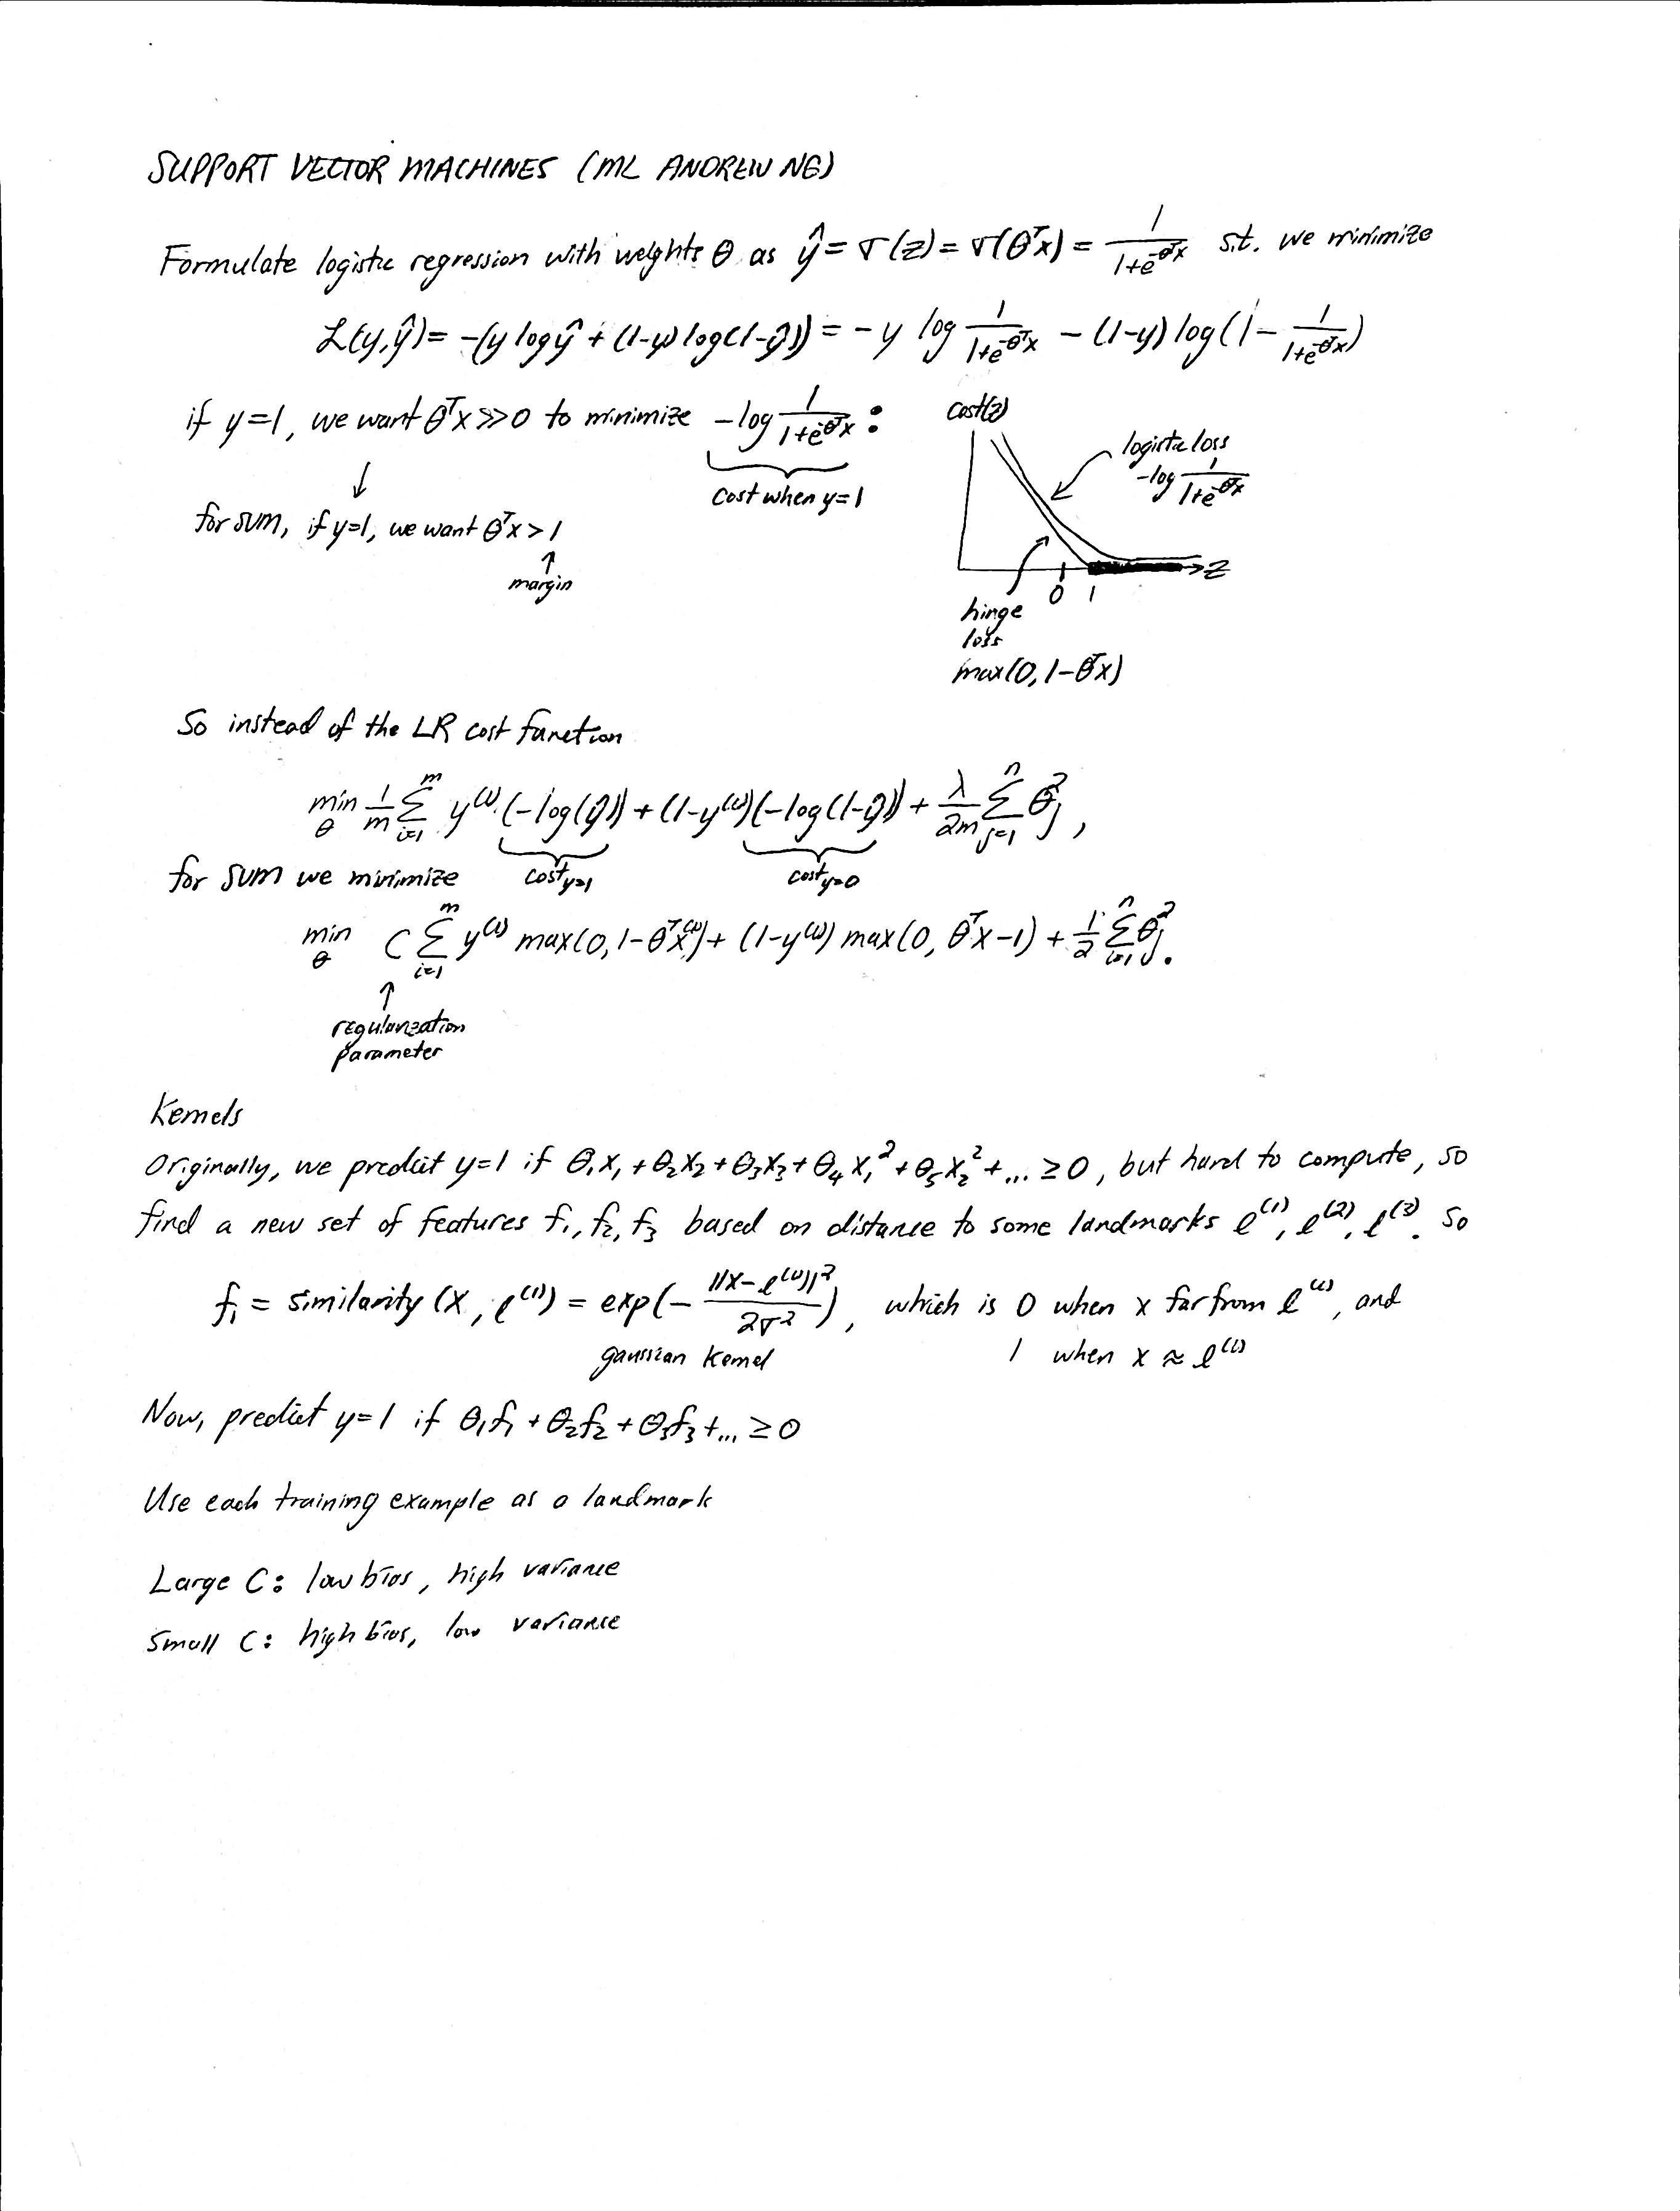 SUPPORT VECTOR MACHINES (ML ANDREW NG)
Formulate logistic regression with weights θ as ŷ = σ(z) = σ(θᵀx) = 1/(1+e^(-θᵀx)) s.t. we minimize
ℒ(y,ŷ) = -(y log ŷ + (1-y) log(1-ŷ)) = -y log 1/(1+e^(-θᵀx)) - (1-y) log(1 - 1/(1+e^(-θᵀx)))
if y=1, we want θᵀx ≫ 0 to minimize -log 1/(1+e^(-θᵀx)) :
cost when y=1
↓
for SVM, if y=1, we want θᵀx > 1
↑
margin
cost(z)
logistic loss
-log 1/(1+e^(-θᵀx))
z
0 1
hinge
loss
max(0, 1-θᵀx)
So instead of the LR cost function
min_θ 1/m Σ_{i=1}^m y^(i) (-log(ŷ)) + (1-y^(i)) (-log(1-ŷ)) + λ/2m Σ_{j=1}^n θ_j²,
cost_{y=1} cost_{y=0}
for SVM we minimize
min_θ C Σ_{i=1}^m y^(i) max(0, 1-θᵀx^(i)) + (1-y^(i)) max(0, θᵀx-1) + 1/2 Σ_{i=1}^n θ_j².
↑
regularization
parameter
Kernels
Originally, we predict y=1 if θ₁x₁ + θ₂x₂ + θ₃x₃ + θ₄x₁² + θ₅x₂² + ... ≥ 0, but hard to compute, so
find a new set of features f₁, f₂, f₃ based on distance to some landmarks l^(1), l^(2), l^(3). So
f₁ = similarity (x, l^(1)) = exp(- ||x-l^(1)||² / 2σ²), which is 0 when x far from l^(1), and
gaussian kernel 1 when x ≈ l^(1)
Now, predict y=1 if θ₁f₁ + θ₂f₂ + θ₃f₃ + ... ≥ 0
Use each training example as a landmark
Large C: low bias, high variance
Small C: high bias, low variance